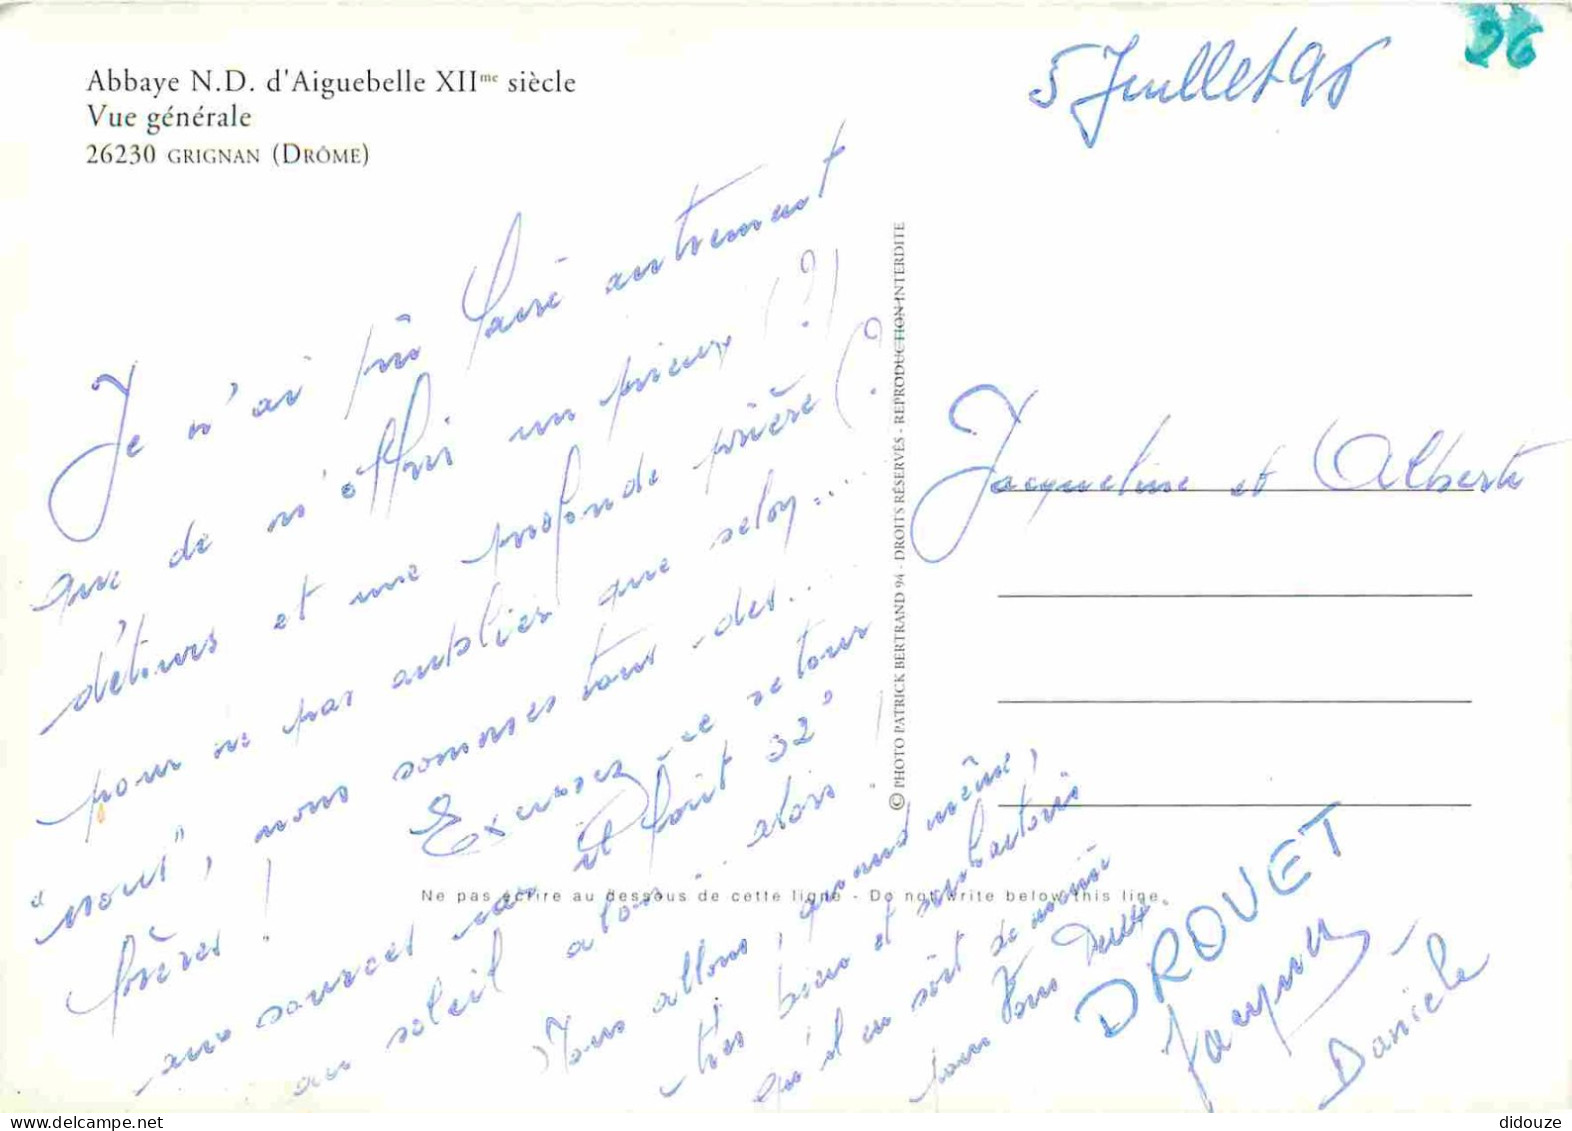 Abbaye N.D. d'Aiguebelle XIIme siècle
Vue générale
26230 GRIGNAN (DRÔME)
26
5 Juillet 96
Je n'ai pû faire autrement
que de m'offrir un pieux (?)
détours et une profonde prière (?
pour ne pas oublier que selon....
"nous", nous sommes tous des...
frères !
Excusez ce retour
aux sources car il fait 32°
au soleil alors... alors !
Nous allons, quand même,
très bien et souhaitons
qu'il en soit de même
pour Vous Deux
Jacqueline et Albert
DROUET
Jacques
Danièle
© PHOTO PATRICK BERTRAND 94 - DROITS RÉSERVÉS - REPRODUCTION INTERDITE
Ne pas écrire au dessous de cette ligne - Do not write below this line.
didouze